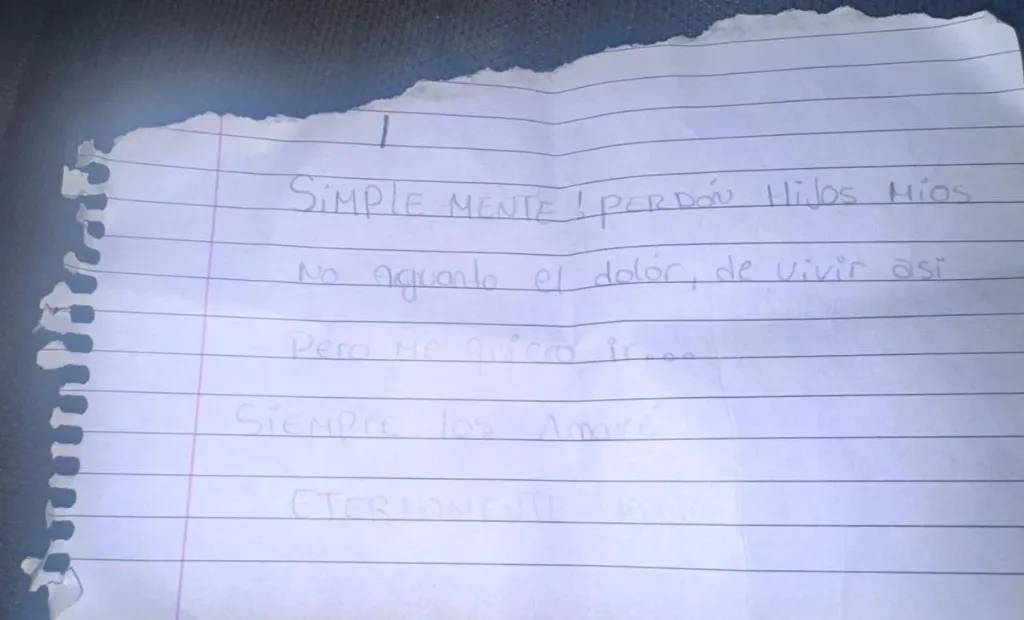 SIMPLE MENTE! PERDÓN HiJos Mios
No aguanto el dolor, de vivir asi
Pero Me quiero ir....
SIEMPRE los Amaré
ETERNAMENTE